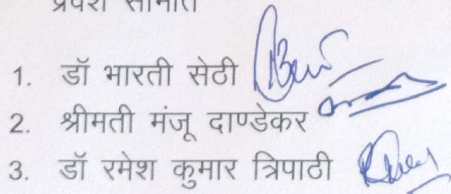 प्रवेश समिति
1. डॉ भारती सेठी
2. श्रीमती मंजू दाण्डेकर
3. डॉ रमेश कुमार त्रिपाठी